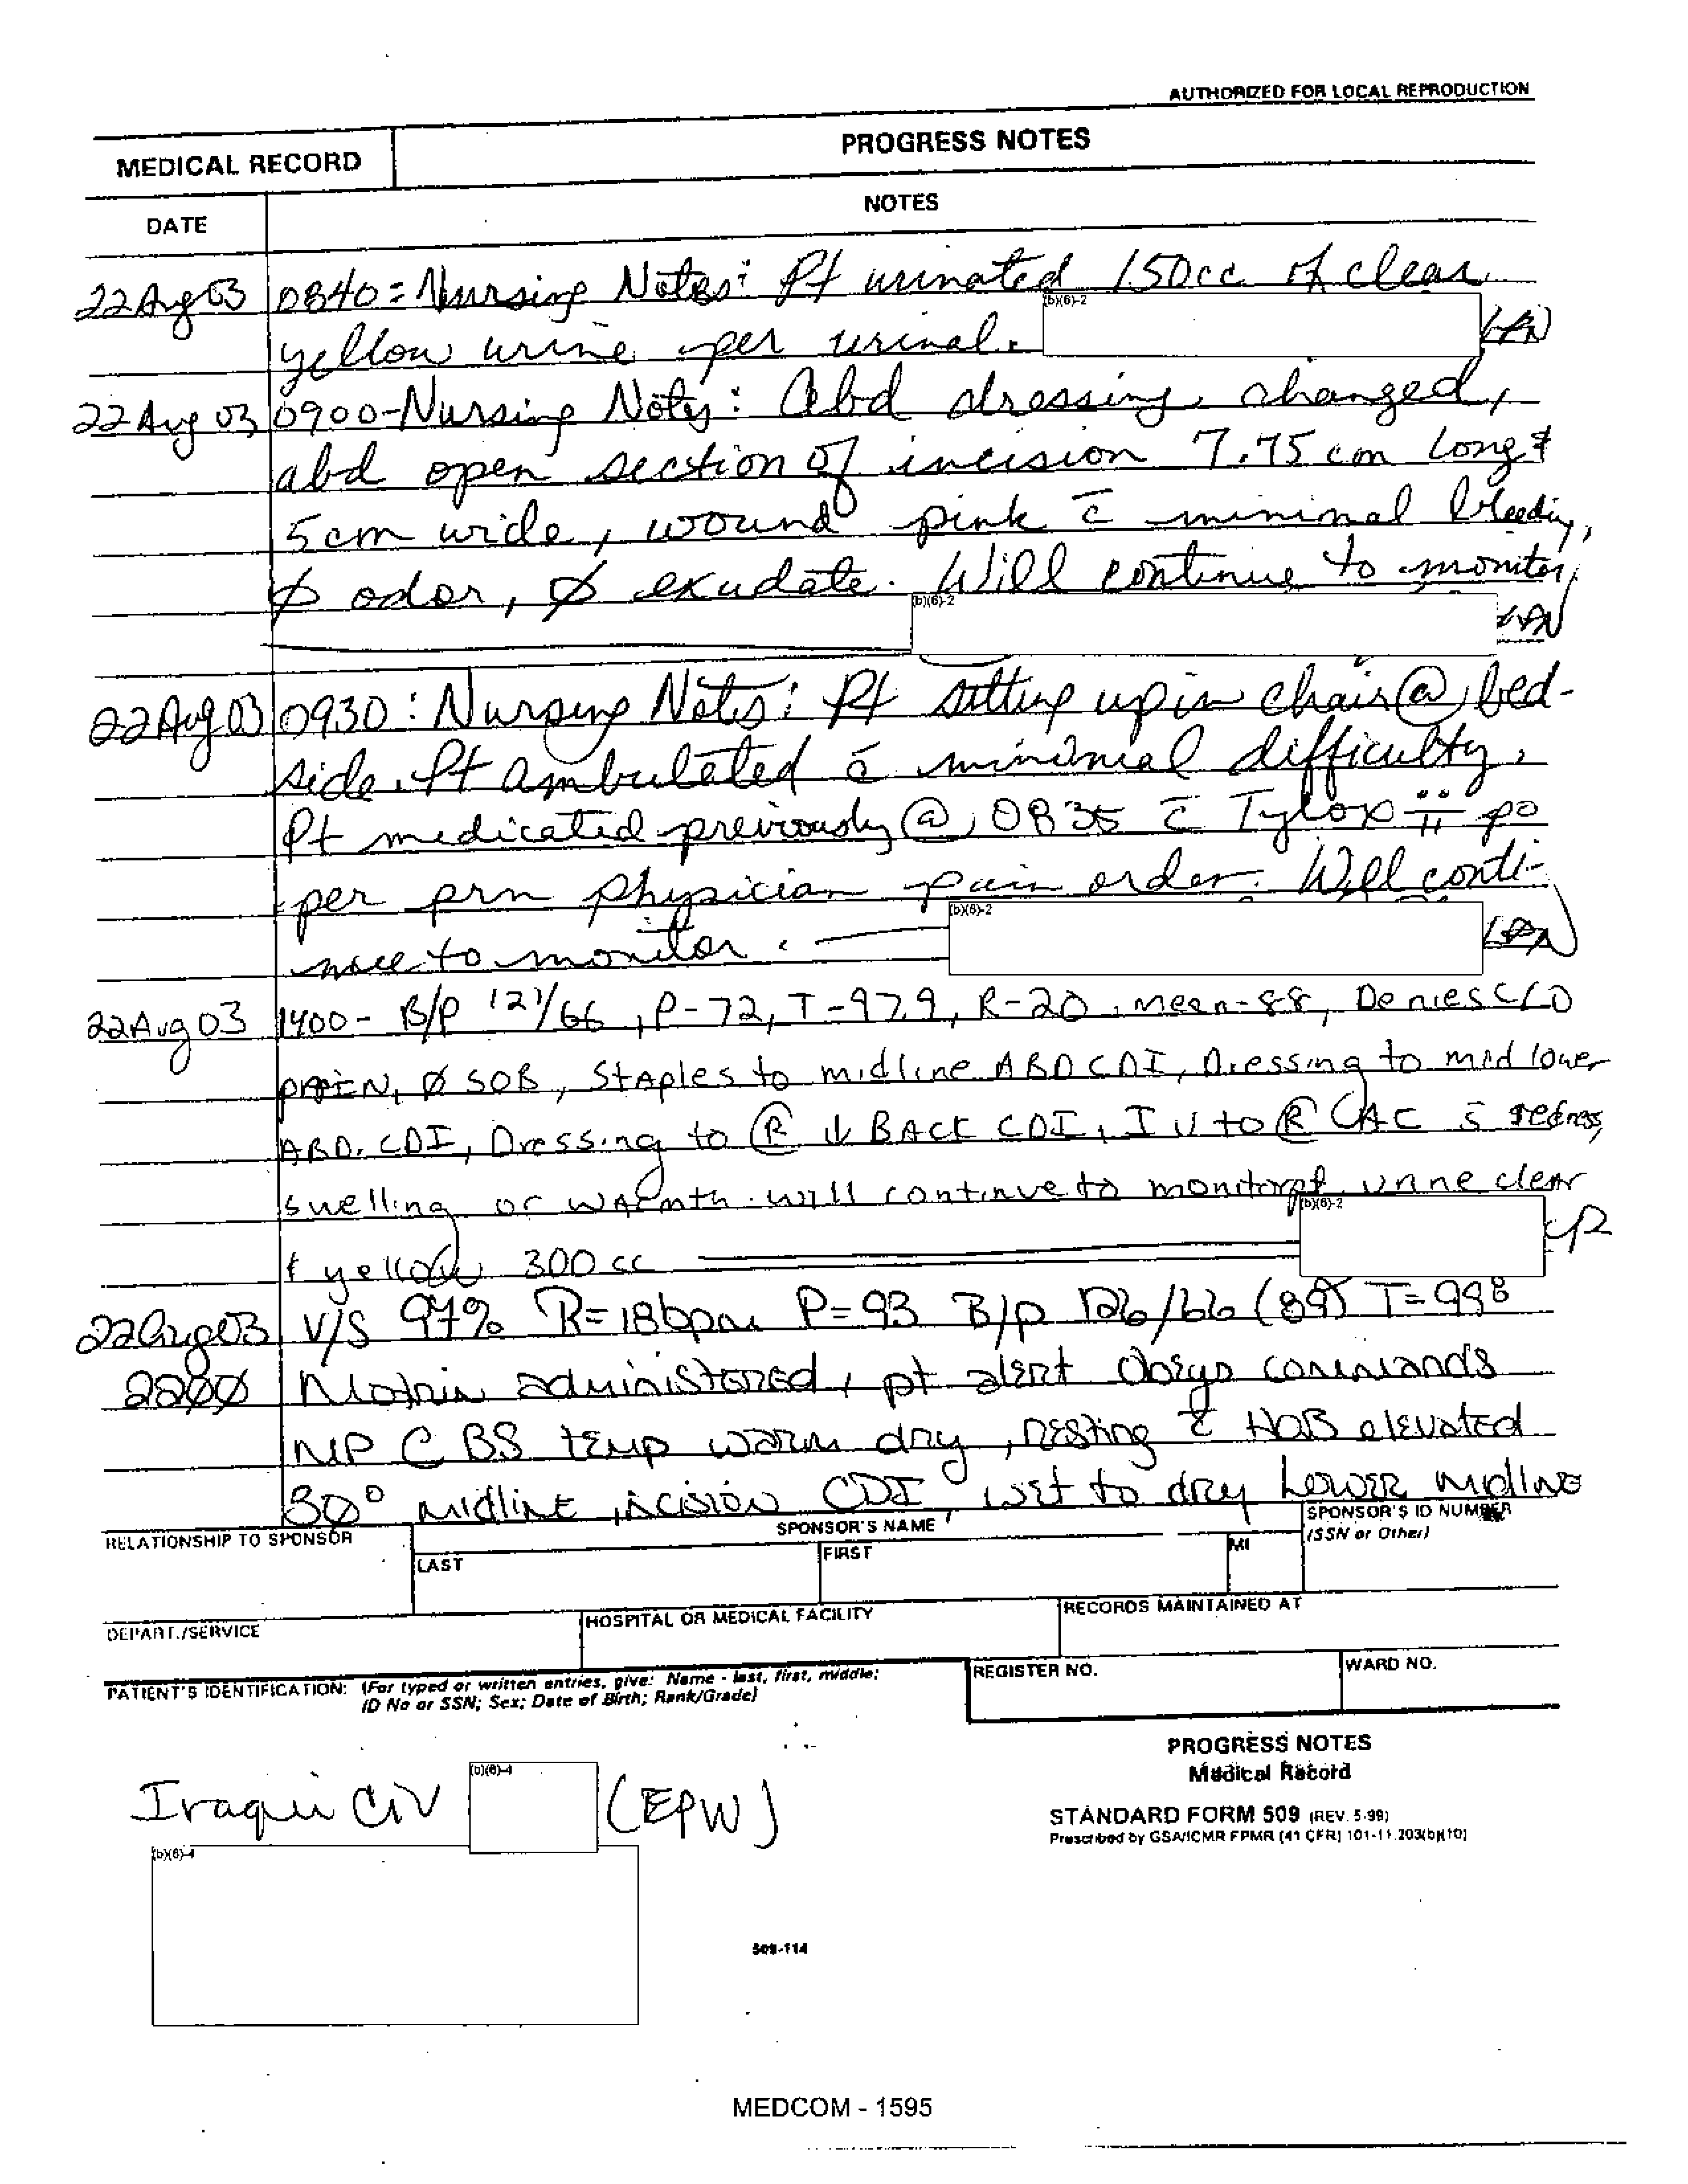 AUTHORIZED FOR LOCAL REPRODUCTION
MEDICAL RECORD
PROGRESS NOTES
DATE
NOTES
22 Aug 03 0840 = Nursing Notes: Pt urinated 150cc of clear
yellow urine per urinal. (b)(6)-2 LPN
22 Aug 03 0900-Nursing Notes: Abd dressing changed,
abd open section of incision 7.75 cm long &
5cm wide, wound pink c̄ minimal bleeding,
Ø odor, Ø exudate. Will continue to monitor,
(b)(6)-2 LPN
22 Aug 03 0930: Nursing Notes: Pt sitting up in chair @ bed-
side. Pt ambulated c̄ minimal difficulty.
Pt medicated previously @ 0835 c̄ Tylox ii po
per prn physician pain order. Will conti-
nue to monitor. (b)(6)-2 LPN
22 Aug 03 1400- B/P 121/66, P-72, T-97.9, R-20, mean-88, Denies C/O
PAIN, Ø SOB, Staples to midline ABD CDI, Dressing to mid lower
ABD. CDI, Dressing to Ⓡ ↓ BACK CDI, IV to Ⓡ AC s̄ redness,
swelling or warmth. will continue to monitor pt urine clear
& yellow 300 cc (b)(6)-2
22 Aug 03 V/S 97% R=18bpm P=93 B/p 126/66 (89) T=998
22ØØ Motrin administered, pt alert obeys commands
BS temp warm dry, resting c̄ HOB elevated
30° midline incision CDI, wet to dry lower midline
RELATIONSHIP TO SPONSOR
SPONSOR'S NAME
SPONSOR'S ID NUMBER
(SSN or Other)
LAST
FIRST
MI
DEPART./SERVICE
HOSPITAL OR MEDICAL FACILITY
RECORDS MAINTAINED AT
PATIENT'S IDENTIFICATION: (For typed or written entries, give: Name - last, first, middle;
ID No or SSN; Sex; Date of Birth; Rank/Grade)
REGISTER NO.
WARD NO.
PROGRESS NOTES
Medical Record
STANDARD FORM 509 (REV. 5-99)
Prescribed by GSA/ICMR FPMR (41 CFR) 101-11.203(b)(10)
Iraqui CIV (b)(6)-4 (EPW)
(b)(6)-4
509-114
MEDCOM - 1595